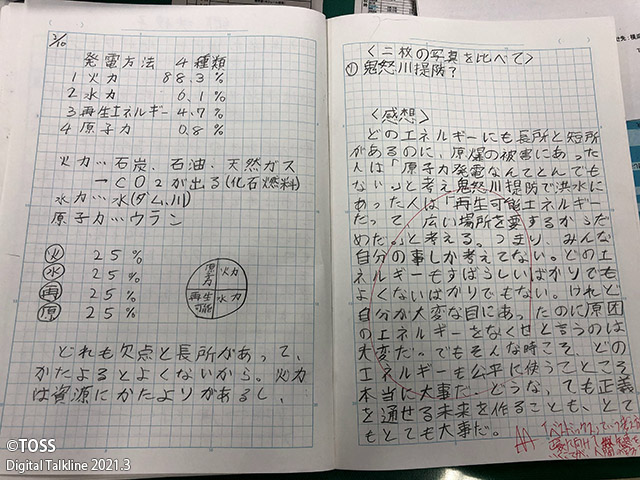 2/10
発電方法 4種類
1 火力 88.3%
2 水力 6.1%
3 再生エネルギー 4.7%
4 原子力 0.8%
火力…石炭、石油、天然ガス
→CO2が出る(化石燃料)
水力…水(ダム、川)
原子力…ウラン
火 25%
水 25%
再 25%
原 25%
原子力 火力
再生可能 水力
どれも欠点と長所があって、
かたよるとよくないから。火力
は資源にかたよりがあるし、
<二枚の写真を比べて>
① 鬼怒川堤防?
<感想>
どのエネルギーにも長所と短所
があるのに、原爆の被害にあった
人は「原子力発電なんてとんでも
ない。」と考え鬼怒川堤防で洪水に
あった人は「再生可能エネルギー
だって、広い場所を要するからだ
めだ。」と考える。つまり、みんな
自分の事しか考えてない。どのエ
ネルギーもすばらしいばかりでも
よくないばかりでもない。けれど
自分が大変な目にあったのに原因
のエネルギーをなくせと言うのは
大変だ。でもそんな時こそ、どの
エネルギーも公平に使うてところ
本当に大事だ。どうなっても正義
を通せる未来を作ることも、とて
もとても大事だ。
AA
©TOSS
Digital Talkline 2021.3